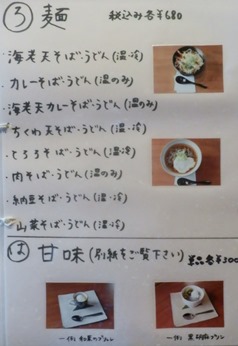 ろ 麺 税込み各¥680
・海老天そば・うどん(温・冷)
・カレーそば・うどん(温のみ)
・海老天カレーそば・うどん(温のみ)
・ちくわ天そば・うどん(温・冷)
・とろろそば・うどん(温・冷)
・肉そば・うどん(温のみ)
・納豆そば・うどん(温・冷)
・山菜そば・うどん(温・冷)
は 甘味 (別紙をご覧下さい) 単品各¥300
一例 和栗のプリン 一例 黒胡麻プリン